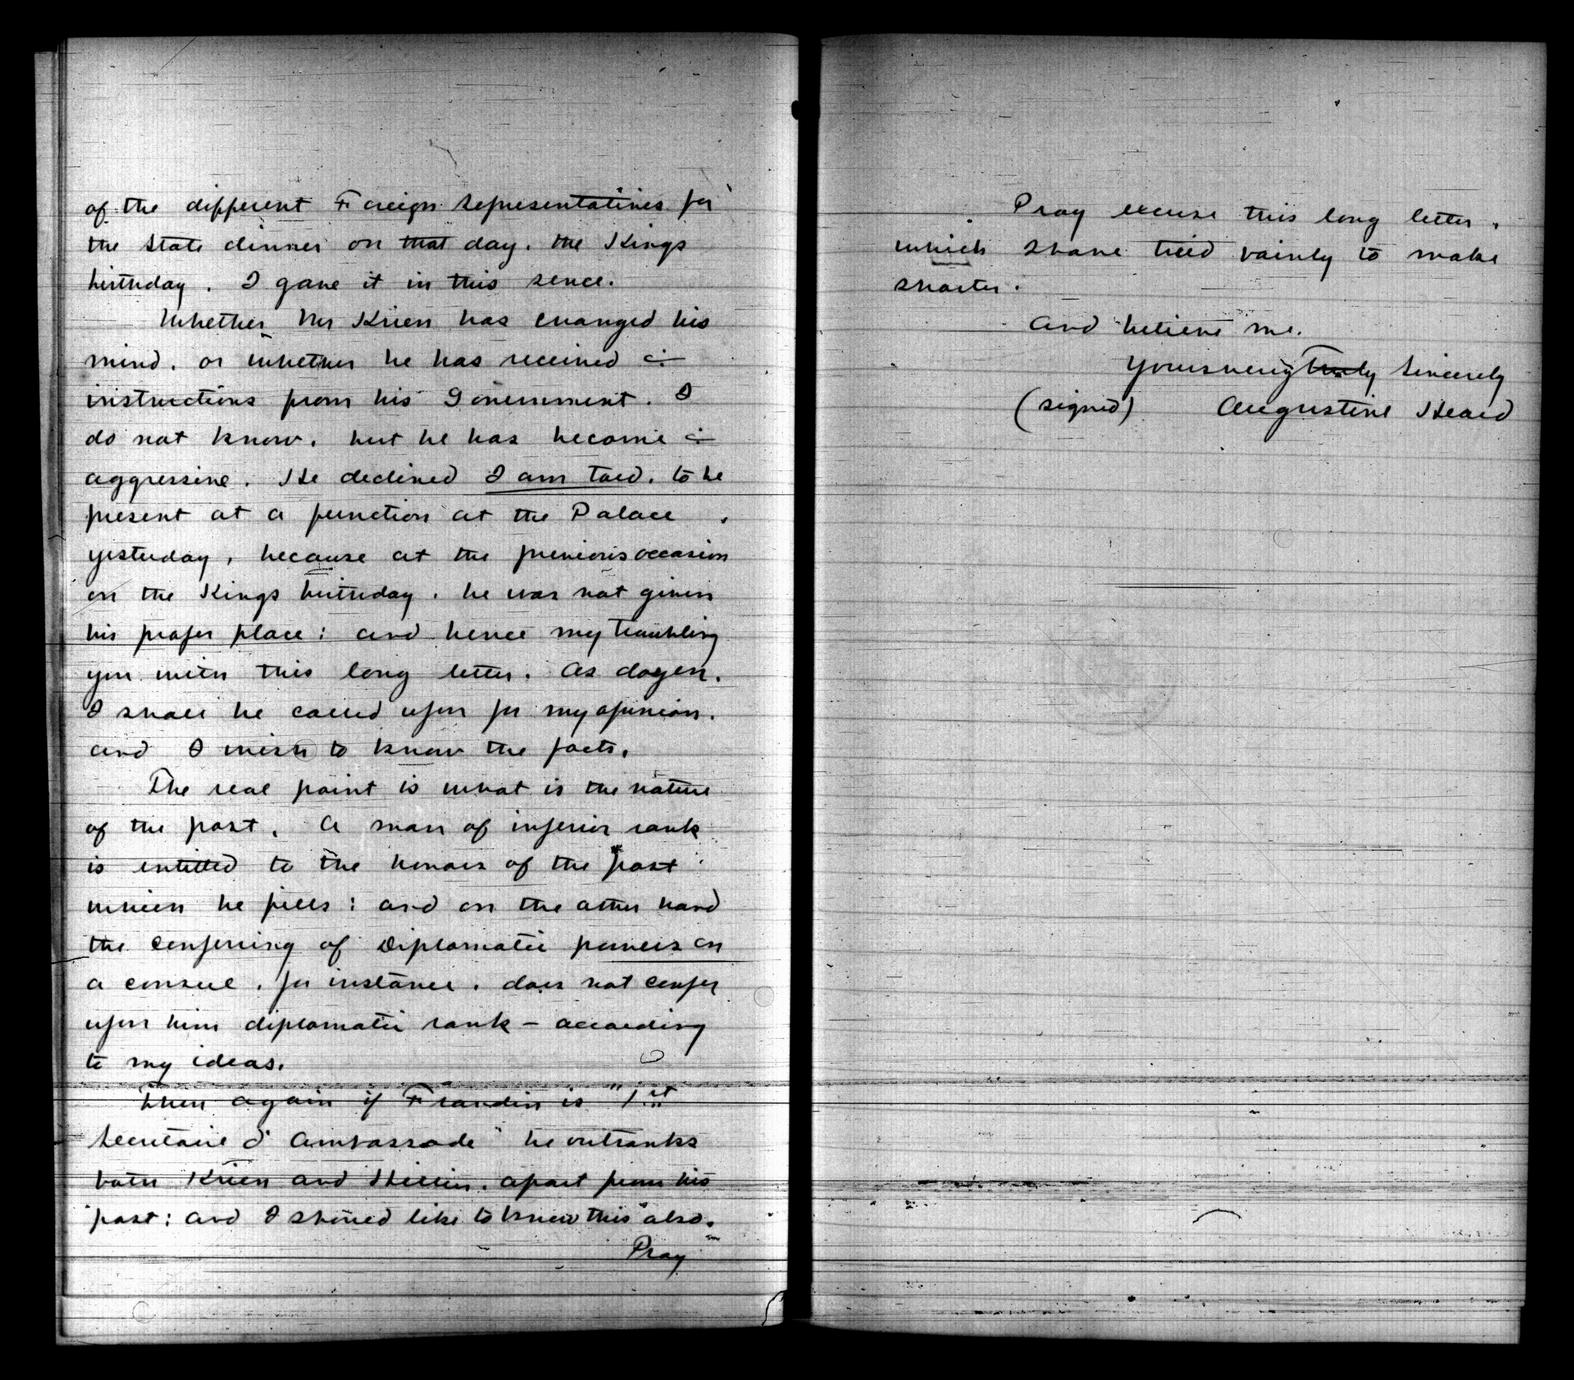 of the different Foreign representatives for
the State dinner on that day, the Kings
birthday. I gave it in this sence.
Whether Mr Krien has changed his
mind, or whether he has received
instructions from his Government, I
do not know, but he has become
aggressive. He declined I am told, to be
present at a function at the Palace
yesterday, because at the previous occasion
on the Kings birthday, he was not given
his proper place: and hence my troubling
you with this long letter. As doyen,
I shall be called upon for my opinion,
and I wish to know the facts.
The real point is what is the nature
of the post. A man of inferior rank
is entitled to the honors of the post
which he fills: and on the other hand
the conferring of Diplomatic powers on
a consul, for instance, does not confer
upon him diplomatic rank - according
to my ideas.
Then again if Frandin is "1st
Secretaire d'Ambassade" he outranks
both Krien and Hillier, apart from his
post: and I should like to know this also.
Pray
Pray excuse this long letter,
which I have tried vainly to make
shorter.
And believe me,
Yours very truly Sincerely
(signed) Augustine Heard